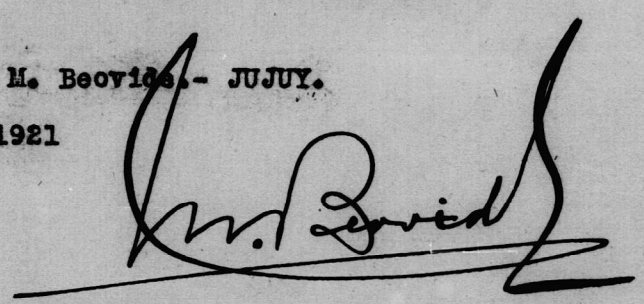 M. Beovide.- JUJUY.
1921
M. Beovide